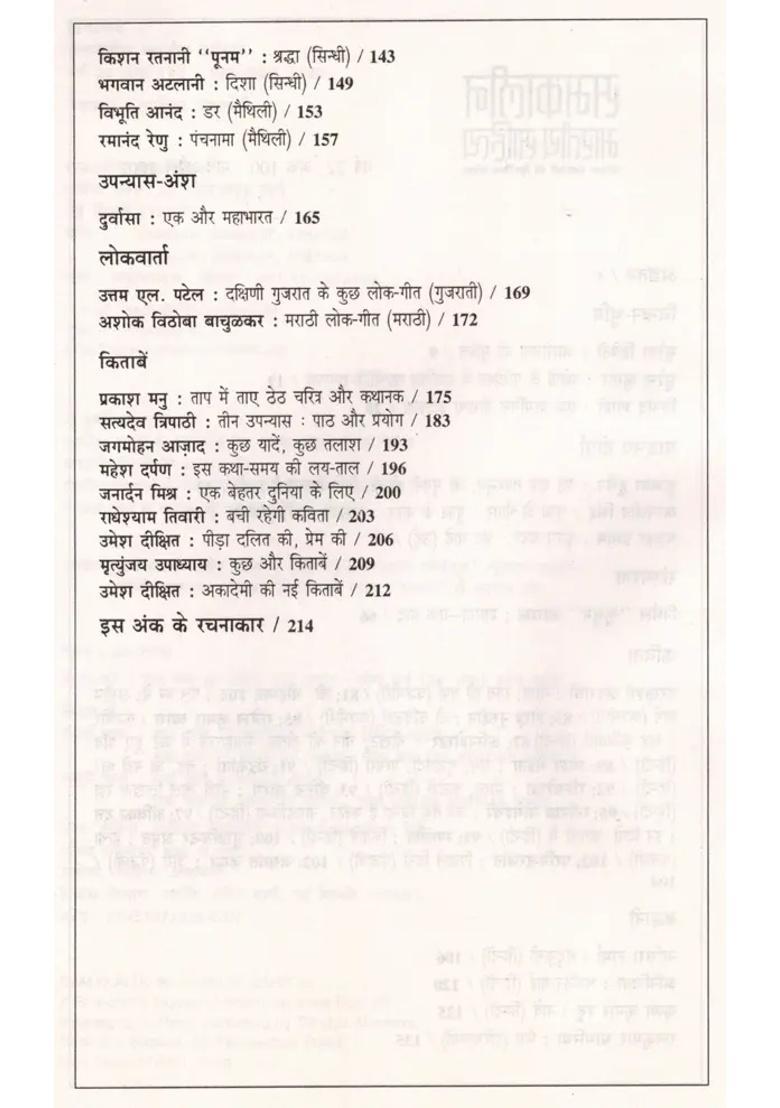 किशन रतनानी "पूनम" : श्रद्धा (सिन्धी) / 143
भगवान अटलानी : दिशा (सिन्धी) / 149
विभूति आनंद : डर (मैथिली) / 153
रमानंद रेणु : पंचनामा (मैथिली) / 157
उपन्यास-अंश
दुर्वासा : एक और महाभारत / 165
लोकवार्ता
उत्तम एल. पटेल : दक्षिणी गुजरात के कुछ लोक-गीत (गुजराती) / 169
अशोक विठोबा बाचुळकर : मराठी लोक-गीत (मराठी) / 172
किताबें
प्रकाश मनु : ताप में ताए ठेठ चरित्र और कथानक / 175
सत्यदेव त्रिपाठी : तीन उपन्यास : पाठ और प्रयोग / 183
जगमोहन आज़ाद : कुछ यादें, कुछ तलाश / 193
महेश दर्पण : इस कथा-समय की लय-ताल / 196
जनार्दन मिश्र : एक बेहतर दुनिया के लिए / 200
राधेश्याम तिवारी : बची रहेगी कविता / 203
उमेश दीक्षित : पीड़ा दलित की, प्रेम की / 206
मृत्युंजय उपाध्याय : कुछ और किताबें / 209
उमेश दीक्षित : अकादेमी की नई किताबें / 212
इस अंक के रचनाकार / 214